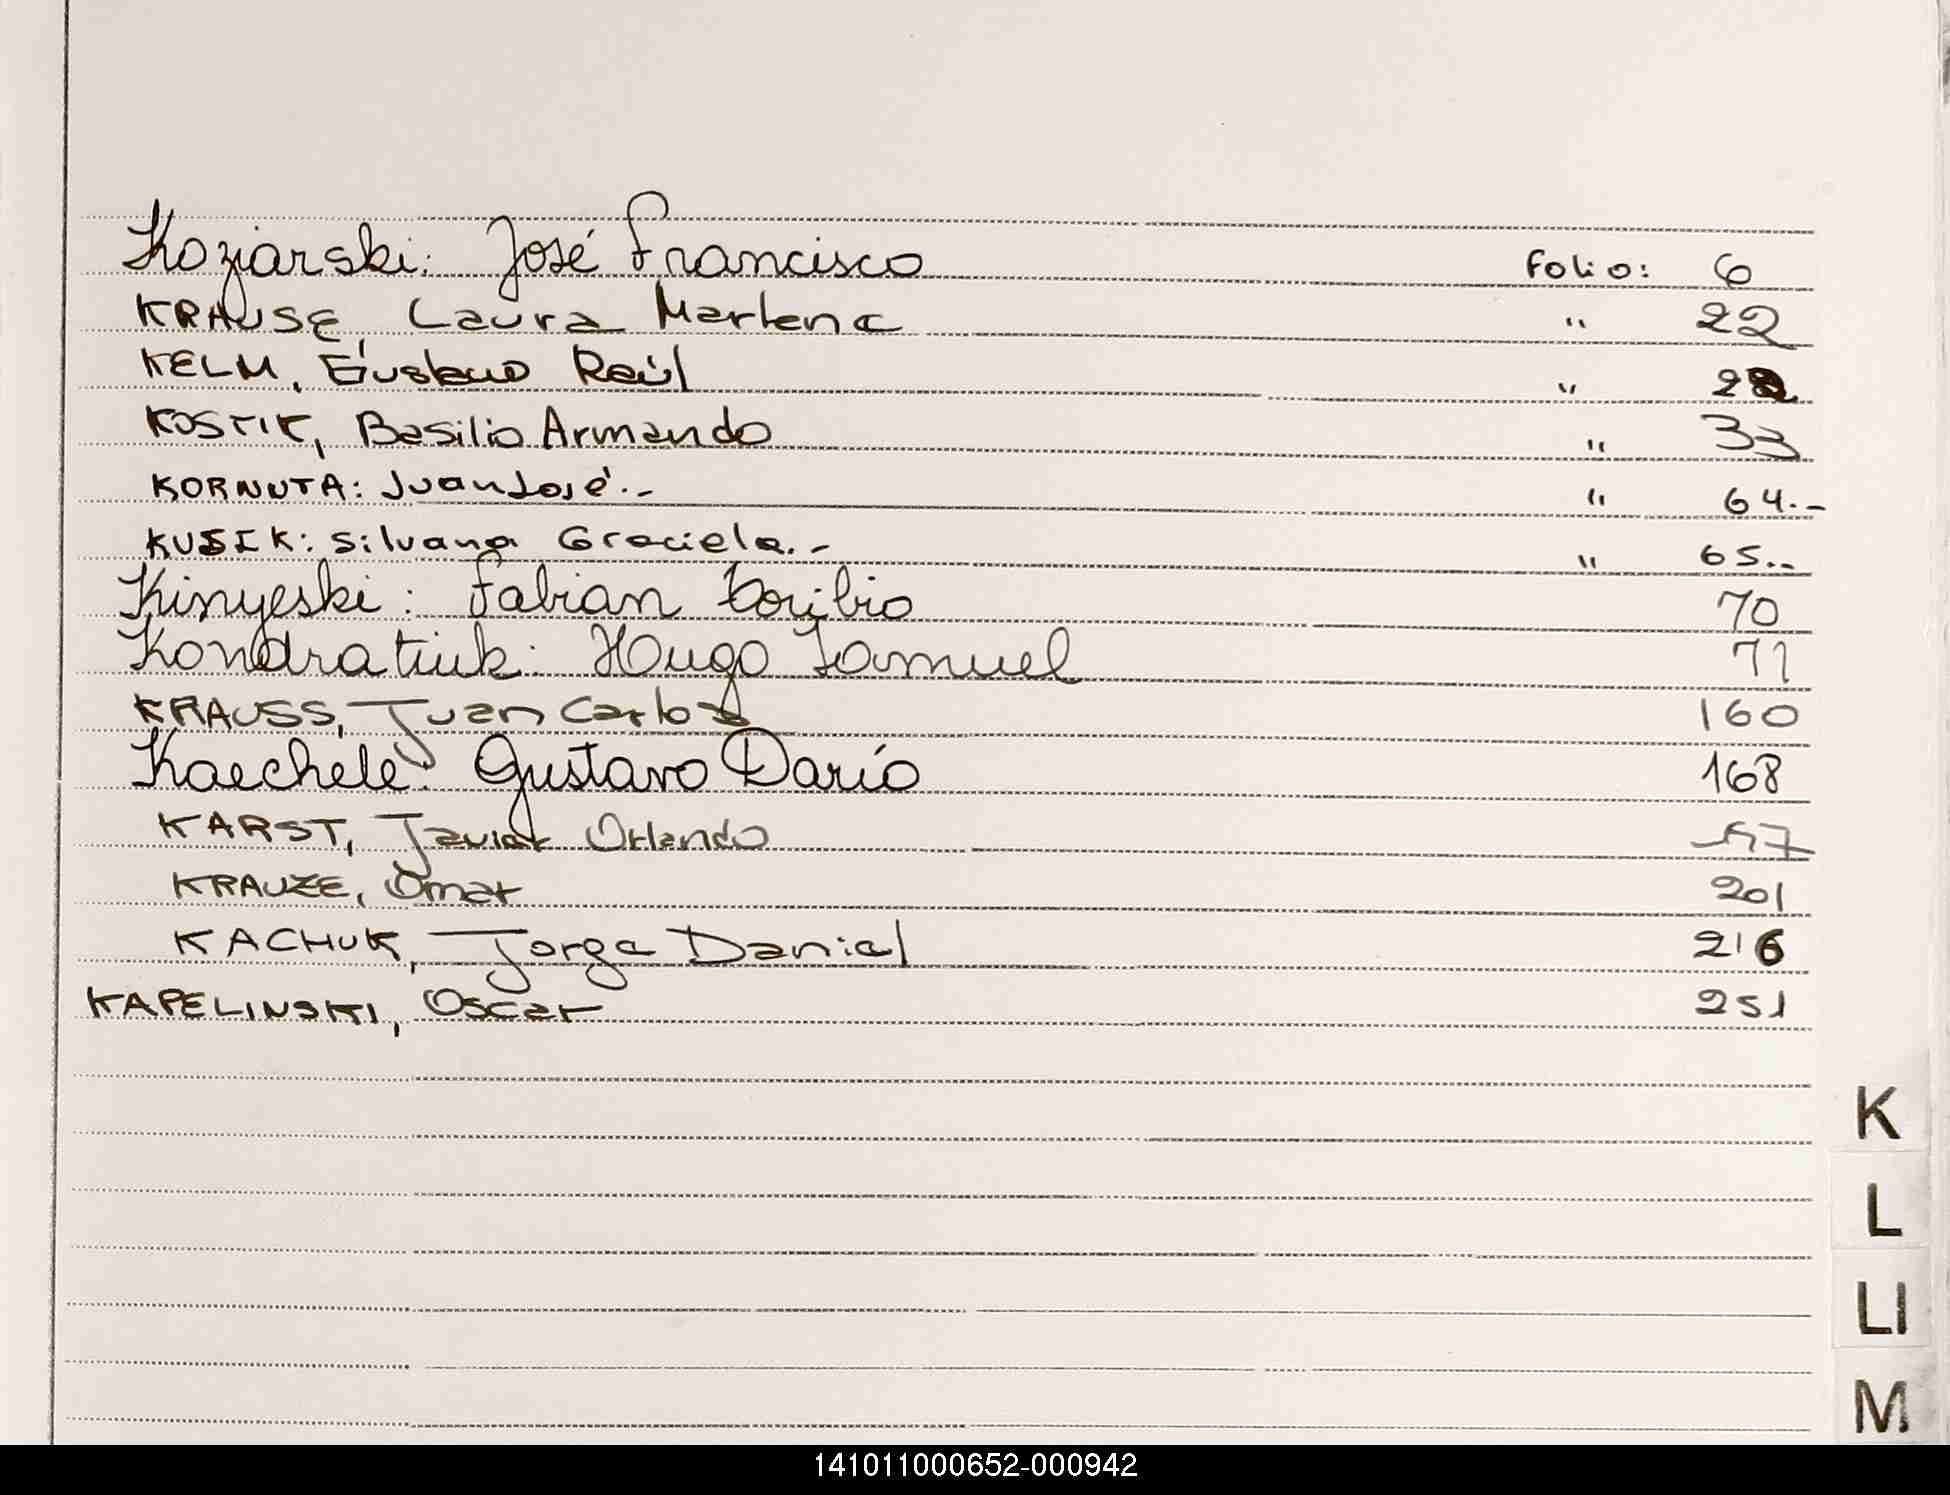 Koziarski: José Francisco folio: 6
KRAUSE, Laura Marlene " 22
KELM, Gustavo Raúl "
KOSTIK, Basilio Armando " 33
KORNUTA: Juan José.- " 64.-
KUSIK: Silvana Graciela.- " 65.-
Kinyeski: Fabian Toribio 70
Kondratiuk: Hugo Samuel 71
KRAUSS, Juan Carlos 160
Kaechele: Gustavo Darío 168
KARST, Javier Orlando
KRAUZE, Omar 201
KACHUK, Jorge Daniel 216
KAPELINSKI, Oscar 251
K
L
Ll
M
141011000652-000942